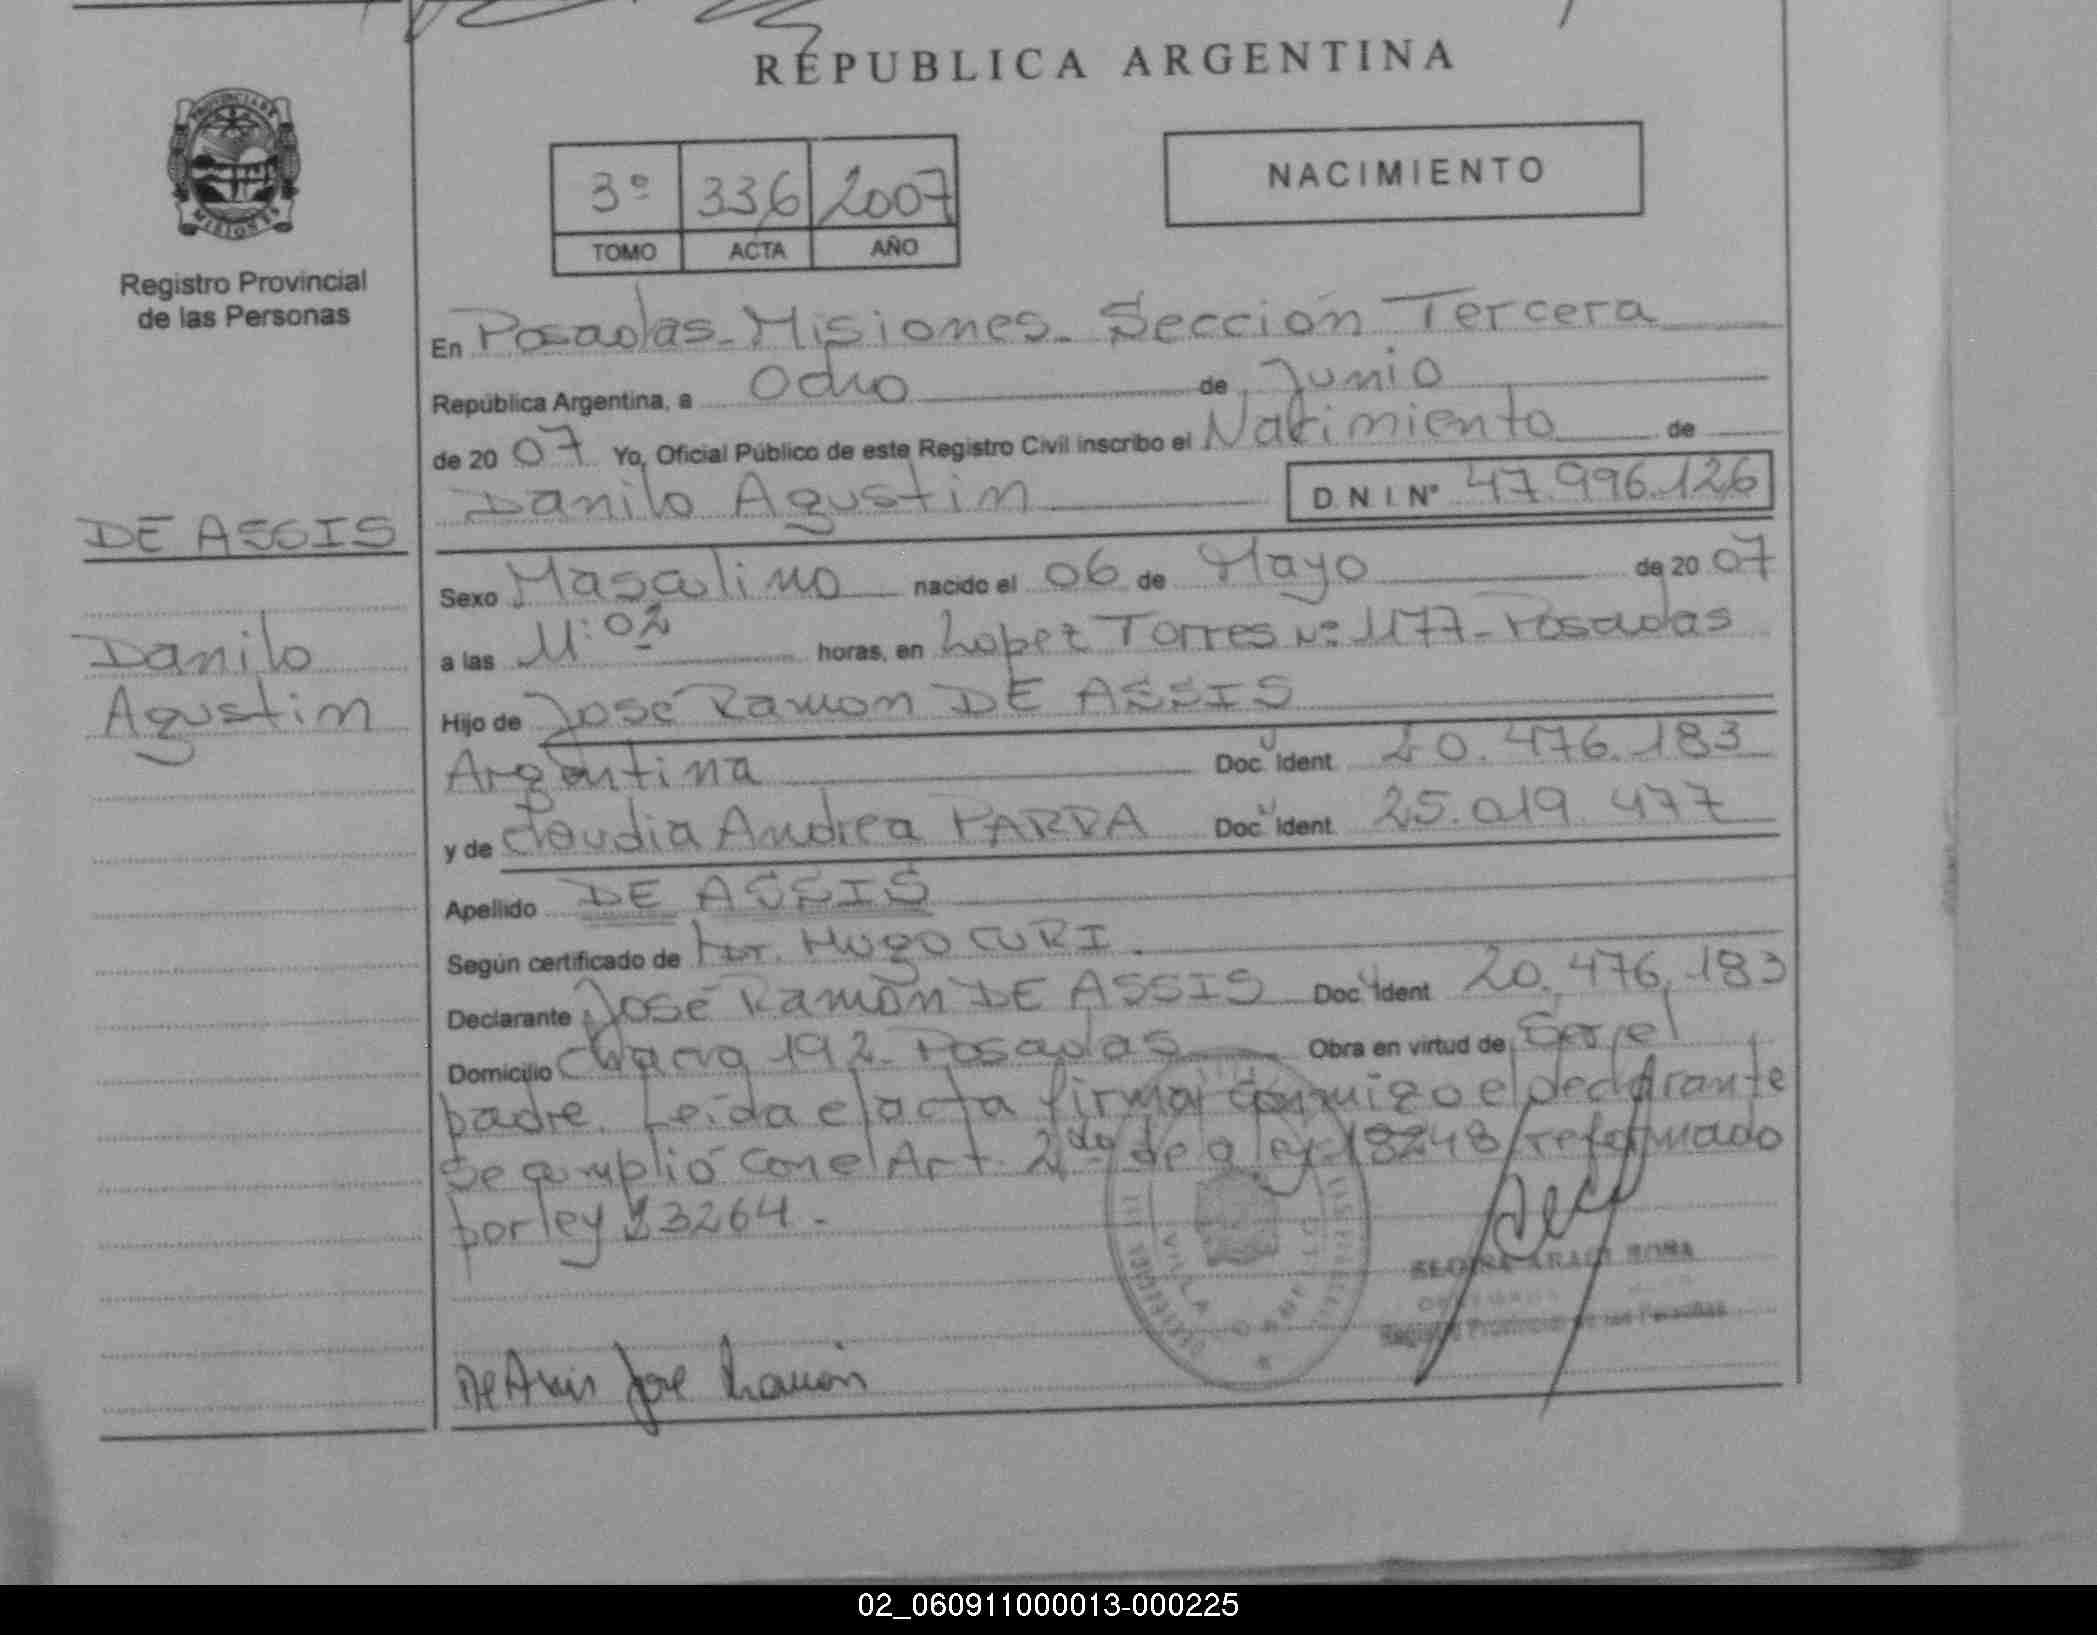 REPUBLICA ARGENTINA
NACIMIENTO
3º 336 2007
TOMO ACTA AÑO
Registro Provincial
de las Personas
En Posadas-Misiones-Sección Tercera
República Argentina, a Ocho de Junio
de 20 07 Yo, Oficial Público de este Registro Civil inscribo el Nacimiento de
Danilo Agustin D.N.I. Nº 47.996.126
DE ASSIS
Danilo
Agustin
Sexo Masculino nacido el 06 de Mayo de 20 07
a las 11:02 horas, en Lopez Torres Nº 1177-Posadas
Hijo de José Ramon DE ASSIS
Argentina Doc. Ident 20.476.183
y de Claudia Andrea PARRA Doc. Ident 25.019.477
Apellido DE ASSIS
Según certificado de Hugo CURI.
Declarante José Ramón DE ASSIS Doc. Ident 20.476.183
Domicilio Chacra 192-Posadas Obra en virtud de Ser el
padre. Leída el acta firma conmigo el declarante
Se cumplió con el Art. 2do de la ley 18248 reformado
por ley 23264.-
De Assis José Ramón
VILLA
Registro Provincial de las Personas
02_060911000013-000225